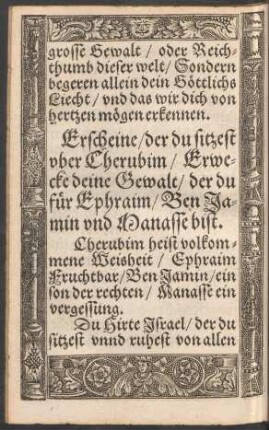 grosse Gewalt / oder Reich-
thumb dieser welt / Sondern
begeren allein dein Göttlichs
Liecht / vnd das wir dich von
hertzen mögen erkennen.
Erscheine / der du sitzest
vber Cherubim / Erwe-
cke deine Gewalt / der du
für Ephraim / Ben Ja-
min vnd Manasse bist.
Cherubim heist volkom-
mene Weisheit / Ephraim
Fruchtbar / Ben Jamin / ein
son der rechten / Manasse ein
vergessung.
Du Hirte Israel / der du
sitzest vnnd ruhest von allen